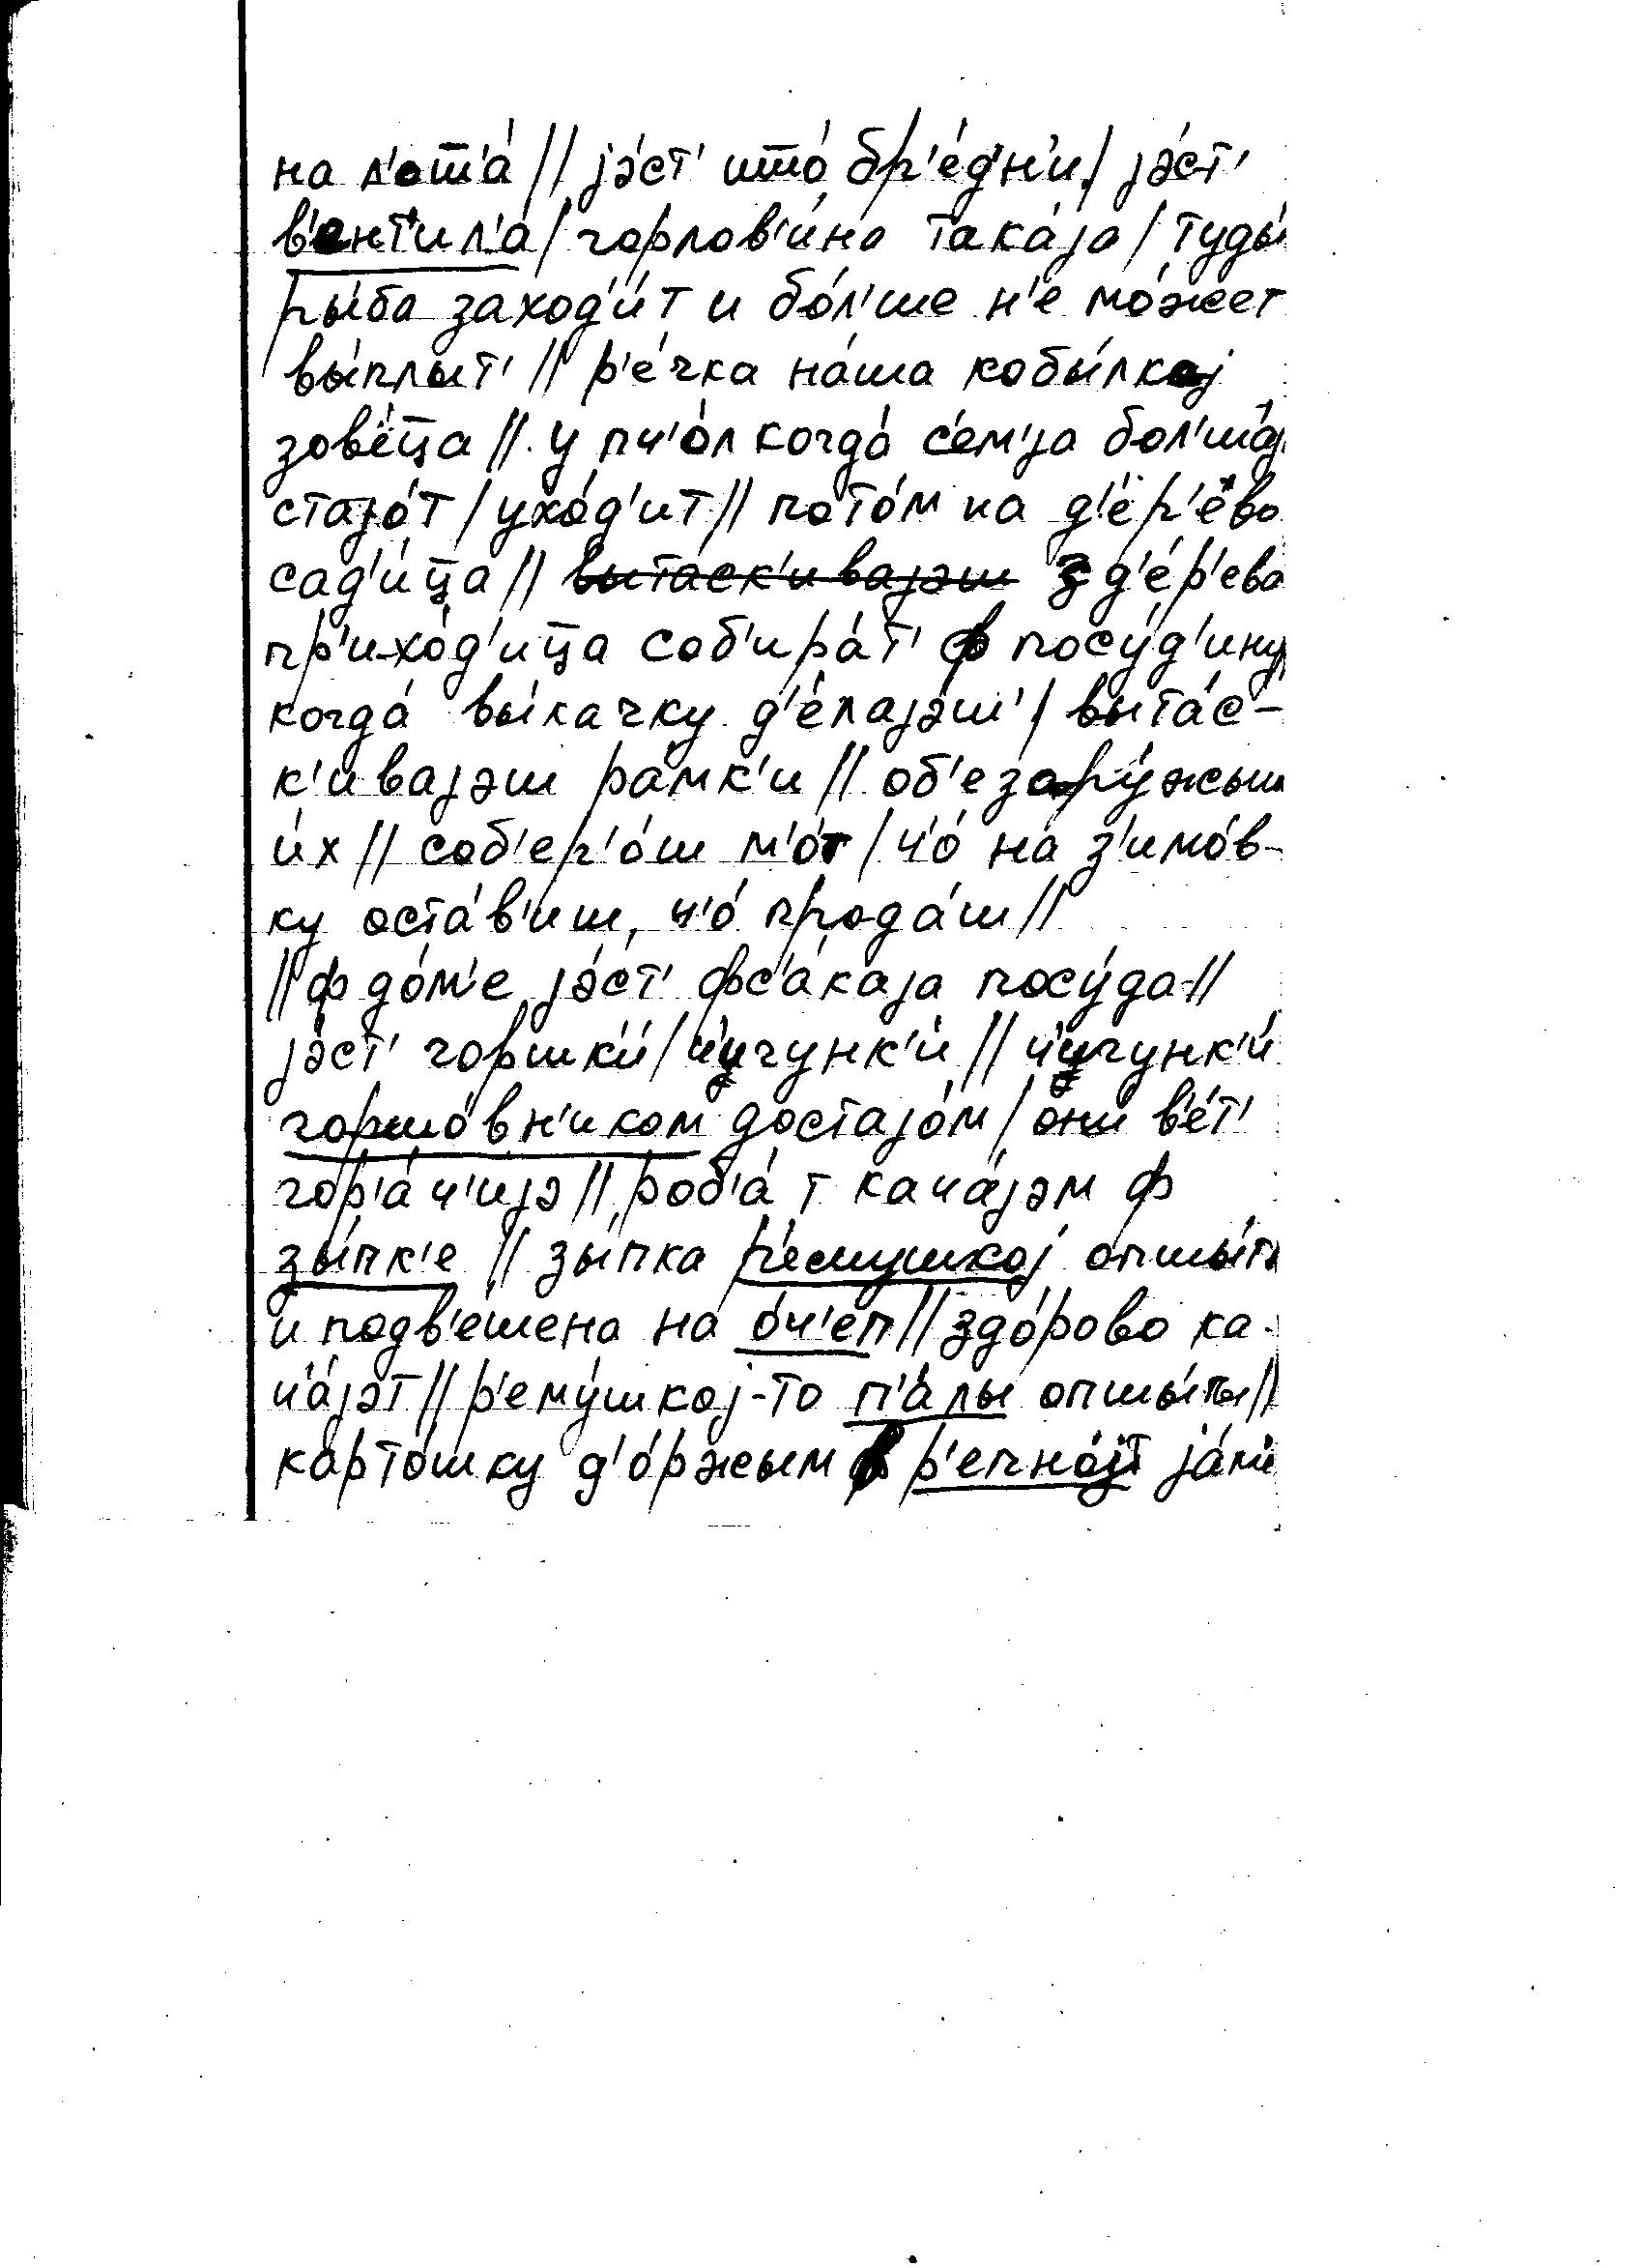 на л'ота́ // jэ́ст' што́ бр'е́дн'и / jэ́ст'
в'ент'ил'а́ / горлов'и́на така́jа / туды́
ры́ба заход'и́т и бо́л'ше н'е мо́жет
вы́плыт' // р'е́чка на́ша кобы́лкоj
зов'е́ца // у пч'о́л когда́ с'ем'jа бол'ша́j
стаjо́т / ухо́д'ит // пото́м на д'е́р'ево
сад'и́ца // вытаск'иваjэш з д'е́р'ева
пр'ихо́д'ица соб'ира́т' ф посу́д'ину
когда́ вы́качку д'е́лаjэш' / выта́с-
к'иваjэш ра́мк'и // об'езору́жыш
и́х // соб'ер'о́ш м'о́т / ч'о́ на з'имо́в-
ку оста́в'иш, ч'о́ прода́ш //
// ф до́м'е jэ́ст' фс'а́каjа посу́да //
jэ́ст' горшк'и́ / ч'угунк'и́ // ч'угунк'и́
горшо́вн'иком достаjо́м / они́ в'е́т'
гор'а́ч'иjэ // роб'а́т кача́jэм ф
зы́пк'е // зы́пка р'ему́шкоj опшы́та
и подв'ешена на о́ч'еп // здо́рово ка-
ч'а́jэт // р'ему́шкоj-то п'а́лы опшы́ты //
карто́шку д'о́ржым в р'епно́jт jа́м'е